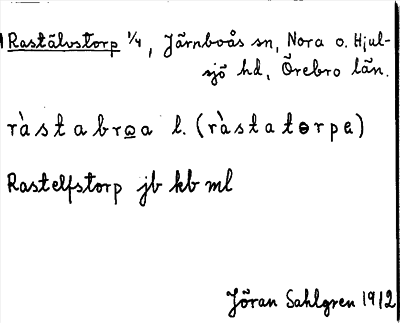 Rastälvstorp 1/4, Järnboås sn, Nora o. Hjul-
sjö hd, Örebro län.
ràstabroa l. (ràstatorpa)
Rastelfstorp jb kb ml
Jöran Sahlgren 1912